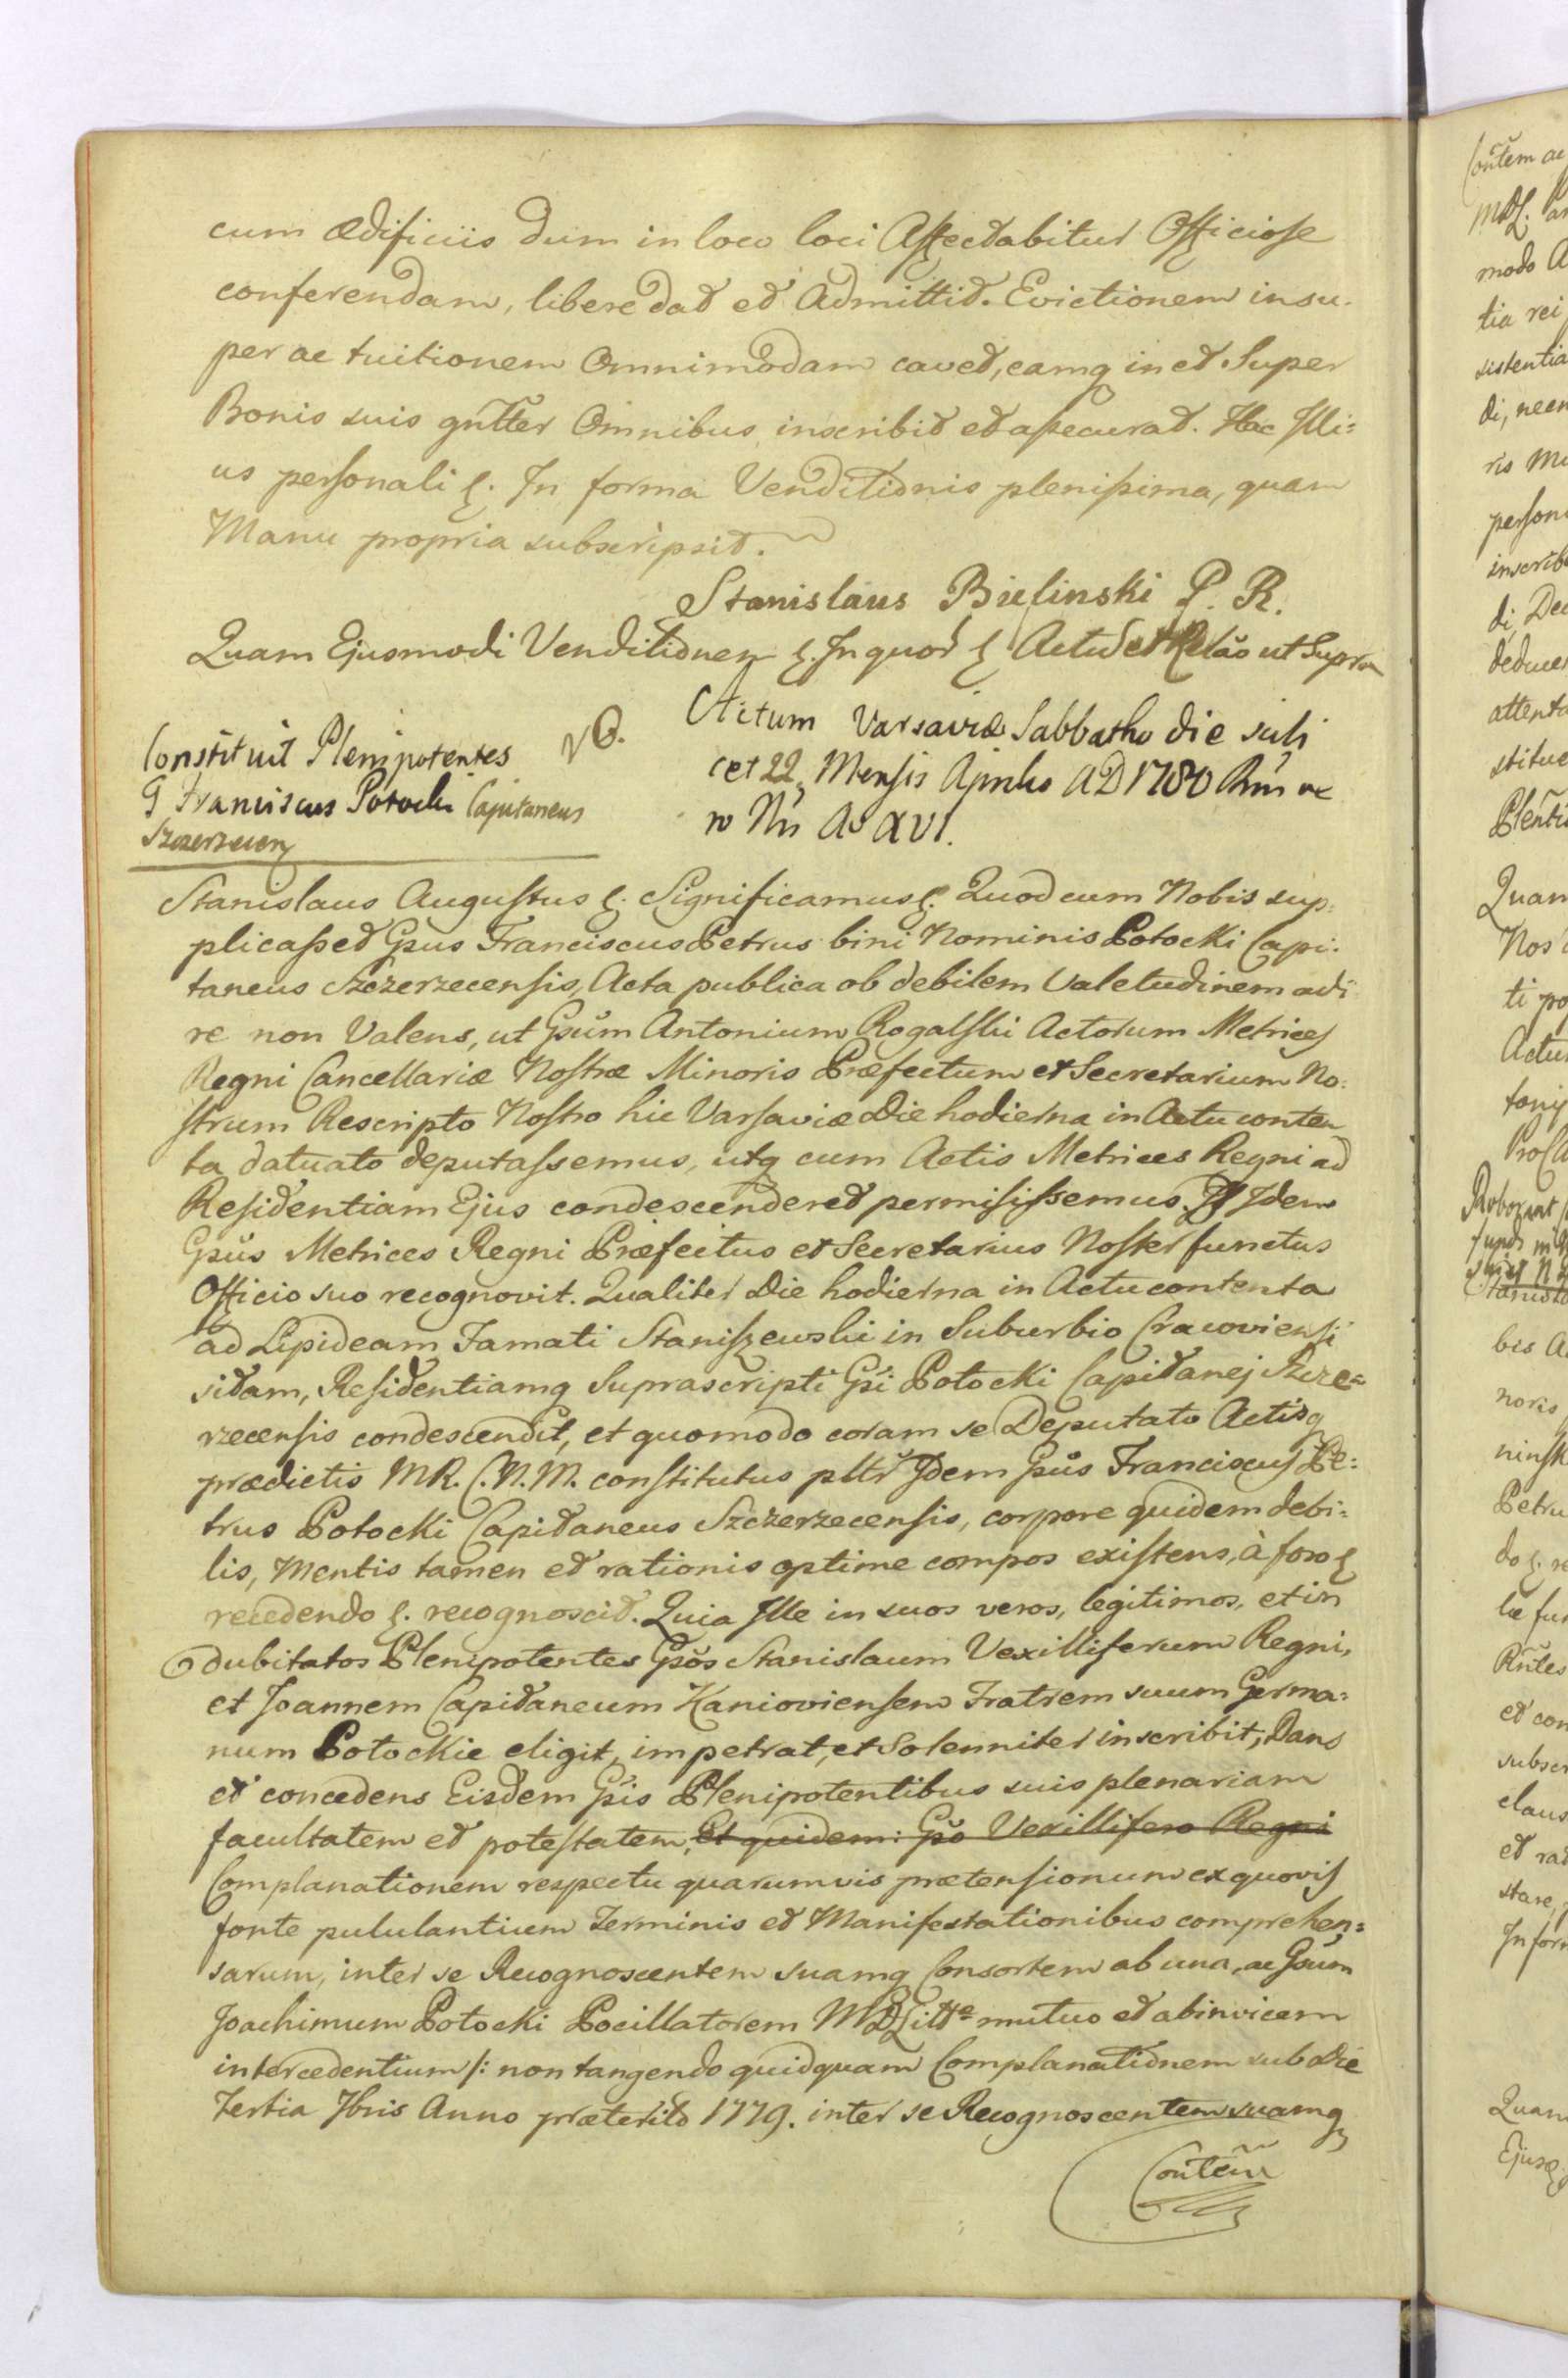 cum ædificiis dum in loco loci Affectabitur Officiose
conferendam, libere dat et Admittit. Evictionem insu-
per ac tuitionem Omnimodam cavet, eamq in et Super
Bonis suis gnłter Omnibus inscribit et assecurat. Hac Illi=
us personali &. In forma Venditionis plenissima, quam
Manu propria subscripsit.
Stanislaus Bielinski P. R.
Quam Ejusmodi Venditionem &. In quor & Actu et Relão ut Supra
Actum Varsaviæ Sabbatho die scili
cet 22 Mensis Aprilis AD 1780 Rm̃ ve
ro Nrĩ Ao XVI.
Constituit Plenipotentes
G Franciscus Potocki Capitaneus
Szczerzecen
Stanislaus Augustus &. Significamus &. Quod cum Nobis sup-
plicasset Gsus Franciscus Petrus bini Nominis Potocki Capi-
taneus Szczerzecensis, Acta publica ob debilem Valetudinem adi
re non Valens, ut Gsum Antonium Rogalski Actorum Metrices
Regni Cancellariæ Nostræ Minoris Præfectum et Secretarium No-
strum Rescripto Nostro hic Varsaviæ Die hodierna in Actu conten
ta datuato deputassemus, utq cum Actis Metrices Regni ad
Residentiam Ejus condescenderet permisissemus. Idem
Gsus Metrices Regni Præfectus et Secretarius Noster functus
Officio suo recognovit. Qualiter Die hodierna in Actu contenta
ad Lapideam Famati Staniszewski in Suburbio Cracoviensi
sitam, Residentiamq Suprascripti Gsi Potocki Capitanej Szcze=
rzecensis condescendit, et quomodo coram se Deputato Actisq
prædictis MR. C. N. M. constitutus psłtr Idem Gsus Franciscus Pe=
trus Potocki Capitaneus Szczerzecensis, corpore quidem debi=
lis, Mentis tamen et rationis optime compos existens, à foro &
recedendo &. recognoscit. Quia Ille in suos veros, legitimos, et in
dubitatos Plenipotentes Gsos Stanislaum Vexilliferum Regni,
et Joannem Capitaneum Kanioviensem Fratrem suum Germa=
num Potockie eligit, impetrat, et Solenniter inscribit, Dans
et concedens Eisdem Gsis Plenipotentibus suis plenariam
facultatem et potestatem, Et quidem: Gso Vexillifero Regni
Complanationem respectu quarumvis prætensionum ex quovis
fonte pululantium Terminis et Manifestationibus comprehen=
sarum, inter se Recognoscentem suamq Consortem ab una, ac Gsum
Joachimum Potocki Pocillatorem MDLittæ mutuo et abinvicem
intercedentium /: non tangendo quidquam Complanationem sub Die
Tertia Jbris Anno præterito 1779. inter se Recognoscentem suamq
Contem̃